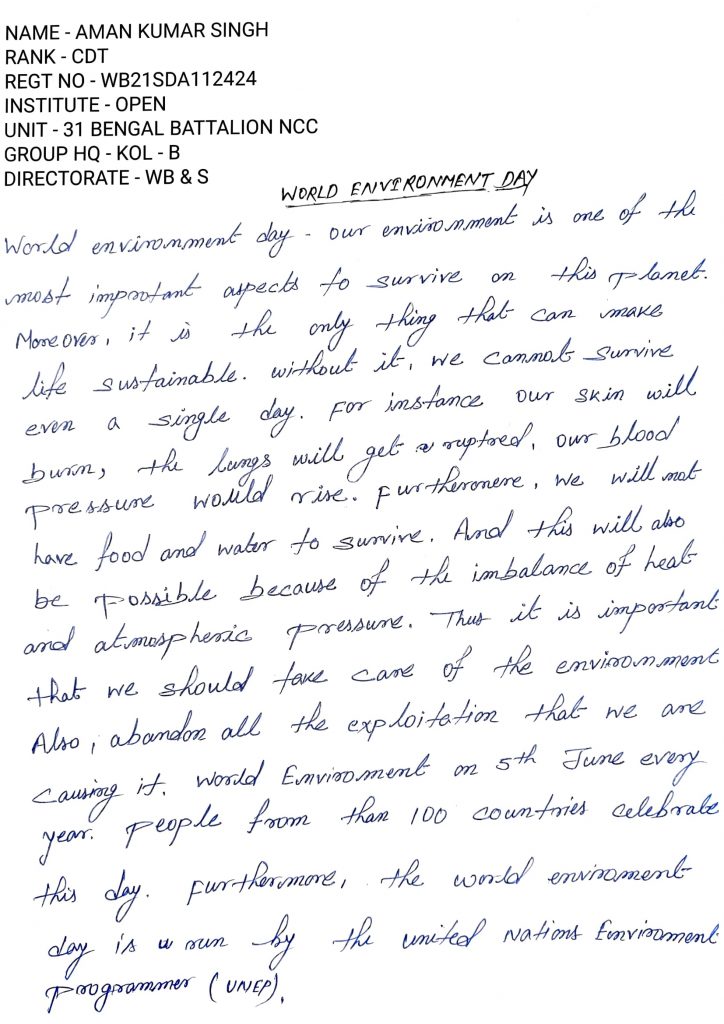 NAME - AMAN KUMAR SINGH
RANK - CDT
REGT NO - WB21SDA112424
INSTITUTE - OPEN
UNIT - 31 BENGAL BATTALION NCC
GROUP HQ - KOL - B
DIRECTORATE - WB & S
WORLD ENVIRONMENT DAY
World environment day - our environment is one of the
most improtant aspects to survive on this planet.
Moreover, it is the only thing that can make
life sustainable. without it, we cannot survive
even a single day. For instance our skin will
burn, the lungs will get ruptred, our blood
pressure would rise. Furtheromere, we will not
have food and water to survive. And this will also
be possible because of the imbalance of heat
and atmospheric pressure. Thus it is important
that we should take care of the environment
Also, abandon all the exploitation that we are
causing it. World Enviroment on 5th June every
year. People from than 100 countries celebrate
this day. Furthermore, the world enviroment
day is run by the united Nations Enviroment
programmer (UNEP).